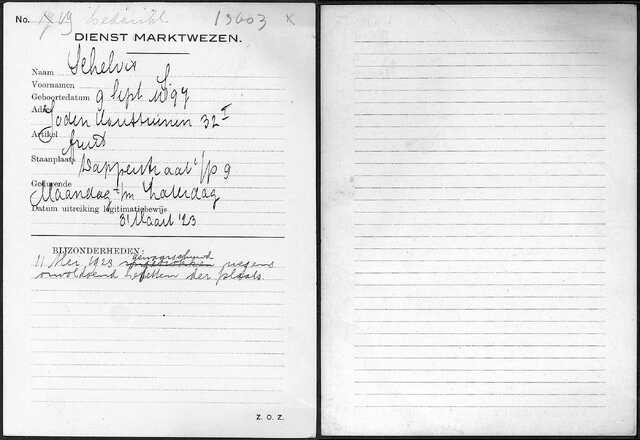 No. 13003 x
DIENST MARKTWEZEN.
Naam Schelvis
Voornamen J.
Geboortedatum 9 Sept 1897
Adres Joden Houttuinen 32 I
Artikel fruit
Staanplaats Dapperstraat v/p 9
Gedurende Maandag t/m Zaterdag
Datum uitreiking legitimatiebewijs
31 Maart '23
BIJZONDERHEDEN:
gewaarschuwd
11 Mei 1923 ingetrokken wegens
onvoldoend bezetten der plaats.
Z. O. Z.